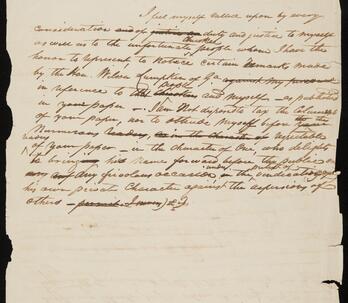 I feel myself called upon by every
consideration and of justice or duty and justice to myself
as well as to the unfortunate people whom I have the
Cherokee
honor to represent to notice certain remarks made
by the Hon. Wilson Lumpkin of Ga
people
in reference to the and myself — as published
in your paper — I am not disposed to tax the columns
of your paper, nor to obtrude myself before
numerous readers, or in the character respectable
of your paper — in the character of one, who delights
to bring his name forward before the public on
any frivolous occasion in the vindication of
his own private character against the aspersions of
others —